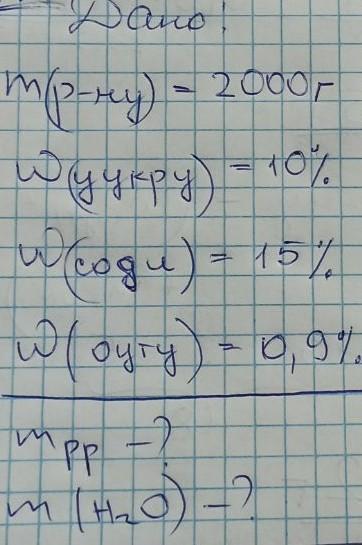 Дано!
m(р-ну) = 2000г
W(цукру) = 10%
W(соди) = 15%
W(оцту) = 0,9%
mрр -?
m (H₂O) -?